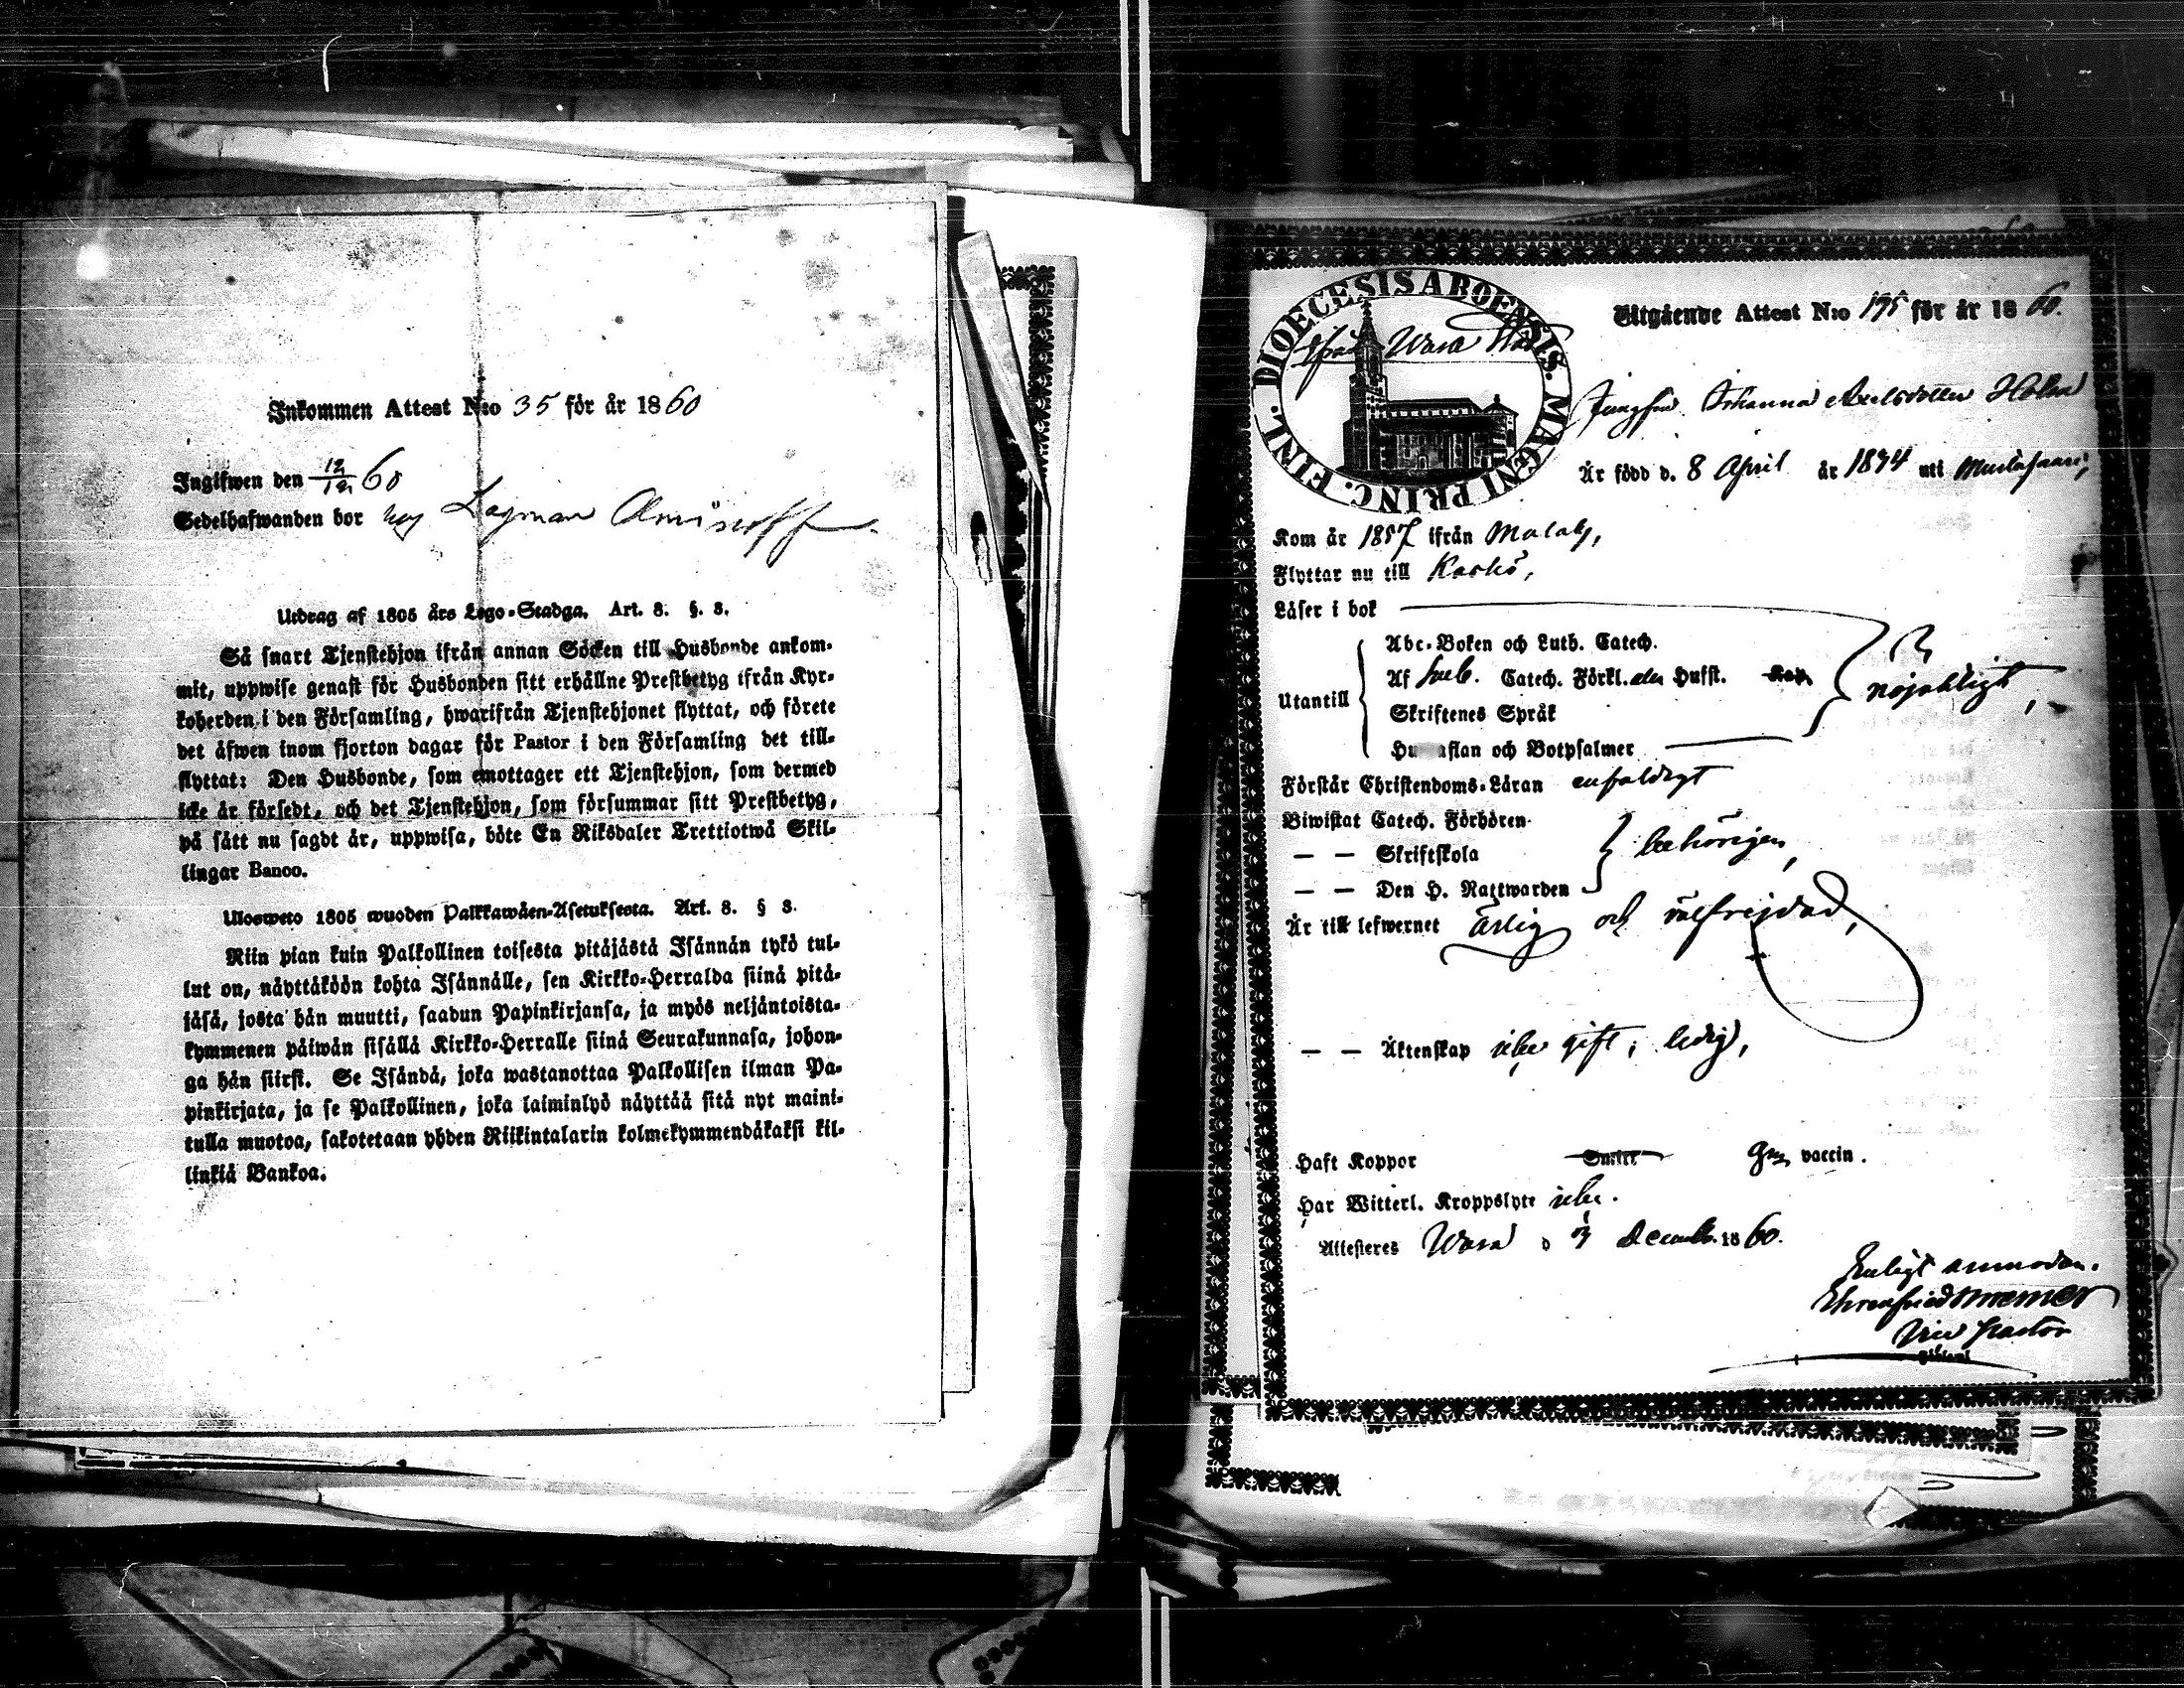 Inkommen Attest N:o 35 för år 1860
Ingifwen den 12/12 60
Sedelhafwanden bor hos Lagman Aminoff
Utdrag af 1805 års Lego-Stadga. Art. 8. §. 8.
Så snart Tjenstehjon ifrån annan Socken till Husbonde ankom-
mit, uppwise genast för Husbonden sitt erhållne Prestbetyg ifrån Kyr-
koherden i den Församling, hwarifrån Tjenstehjonet flyttat, och förete
det äfwen inom fjorton dagar för Pastor i den Församling det till-
flyttat: Den Husbonde, som emottager ett Tjenstehjon, som dermed
icke är försedt, och det Tjenstehjon, som försummar sitt Prestbetyg,
på sätt nu sagdt är, uppwisa, böte En Riksdaler Trettiotwå Skil-
lingar Banco.
Ulosweto 1805 wuoden Palkkawäen-Asetuksesta. Art. 8. § 8.
Niin pian kuin Palkollinen toisesta pitäjästä Isännän tykö tul-
lut on, näyttäköön kohta Isännälle, sen Kirkko-Herralda siinä pitä-
jäsä, josta hän muutti, saadun Papinkirjansa, ja myös neljäntoista-
kymmenen päiwän sisällä Kirkko-Herralle siinä Seurakunnasa, johon-
ga hän siirsi. Se Isändä, joka wastanottaa Palkollisen ilman Pa-
pinkirjata, ja se Palkollinen, joka laiminlyö näyttää sitä nyt maini-
tulla muotoa, sakotetaan yhden Riikintalarin kolmekymmendäkaksi kil-
linkiä Bankoa.
DIOECESIS ABOENSIS. MAGNI PRINC. FINL.
Wasa
Utgående Attest N:o 175 för år 1860.
Jungfru Johanna Axelsdotter Holm
Är född d. 8 April år 1834 uti Mustasaari,
Kom år 1857 ifrån Malaks,
Flyttar nu till Kaskö,
Läser i bok
Abc-Boken och Luth. Catech.
Af Sveb. Catech. Förkl. Husst.
Utantill
nöjaktigt,
Skriftenes Språk
Hustaflan och Botpsalmer
Förstår Christendoms-Läran enfaldigt
Biwistat Catech. Förhören
— — Skriftskola
behörigen,
— — Den H. Nattwarden
Är till lefwernet ärlig och välfrejdad,
— — Äktenskap icke gift; ledig,
Haft Koppor Smitt Gm vaccin.
Har Witterl. Kroppslyte icke.
Attesteres Wasa d 3 Decemb. 1860.
Enligt anmodan.
Ehrenfried
Vice Pastor